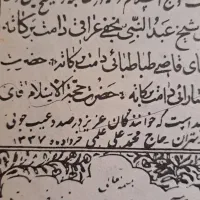 شیخ عبدالنبی نجفی عراقی دامت برکاته
ای قاضی طباطبائی دامت برکاته حضرت
دامت برکاته حضرت حجة الاسلام آقای
است که خوانندگان عزیز در صدد عیب جوئی
حاج محمد علی علمی خرداد ۱۳۳۷
بسمه تعالی